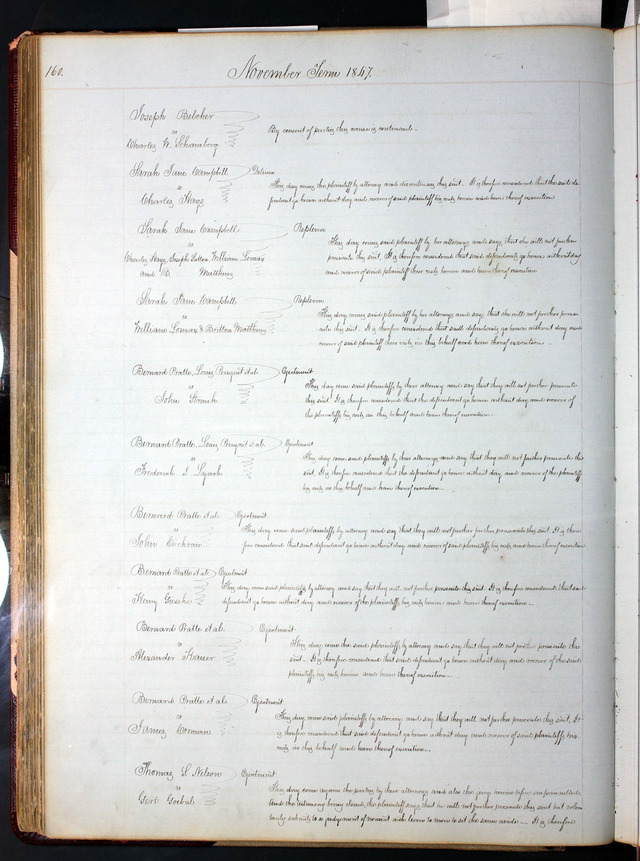 160.
November Term 1847.
Joseph Belcher
vs
Charles W. Schaumburg
By consent of parties this cause is continued.
Sarah Jane Campbell Detinue
vs
Charles Hays
This day comes the plaintiff by attorney and discontinues this suit. It is therefore considered that the said de-
fendant go hence without day and recover of said plaintiff his costs herein and have thereof execution
Sarah Jane Campbell Replevin
vs
Charles Hays, Joseph Sutton, William Lomax
and B. Matthews
This day comes said plaintiff by her attorney and says that she will not further
prosecute this suit. It is therefore considered that said defendants go hence without day
and recover of said plaintiff their costs herein and have thereof execution
Sarah Jane Campbell Replevin
vs
William Lomax & Britton Matthews
This day comes said plaintiff by her attorney and says that she will not further prose-
cute this suit. It is therefore considered that said defendants go hence without day and
recover of said plaintiff their costs in this behalf and have thereof execution.
Bernard Pratte, Louis et als Ejectment
vs
John
This day come said plaintiffs by their attorney and say that they will not further prosecute
this suit. It is therefore considered that the defendant go hence without day and recover of
the plaintiffs his costs in this behalf and have thereof execution.
Bernard Pratte, Louis et als. Ejectment
vs
Frederick S. Lynch
This day come said plaintiffs by their attorney and say that they will not further prosecute this
suit. It is therefore considered that the defendant go hence without day and recover of the plaintiffs
his costs in this behalf and have thereof execution.
Bernard Pratte et als Ejectment
vs
John Cochran
This day come said plaintiffs by attorney and say that they will not further prosecute this suit. It is there-
fore considered that said defendant go hence without day and recover of said plaintiffs his costs and have thereof execution
Bernard Pratte et als Ejectment
vs
Henry Gieske
This day come said plaintiffs by attorney and say that they will not further prosecute this suit. It is therefore considered that said
defendant go hence without day and recover of the plaintiffs his costs herein and have thereof execution.
Bernard Pratte et al. Ejectment
vs
Alexander
This day come the said plaintiffs by attorney and say that they will not further prosecute this
suit. It is therefore considered that said defendant go hence without day and recover of the said
plaintiffs his costs herein and have thereof execution.
Bernard Pratte et als Ejectment
vs
James Corman
This day come said plaintiffs by attorney and say that they will not further prosecute this suit. It
is therefore considered that said defendant go hence without day and recover of said plaintiffs his
costs in this behalf and have thereof execution.
Thomas S. Nelson Ejectment
vs
Gert Goebel
This day come again the parties by their attorneys and also the jury herein before empannelled,
and the testimony being closed, the plaintiff says that he will not further prosecute this suit but volun-
tarily submits to a judgement of nonsuit with leave to move to set the same aside. It is therefore